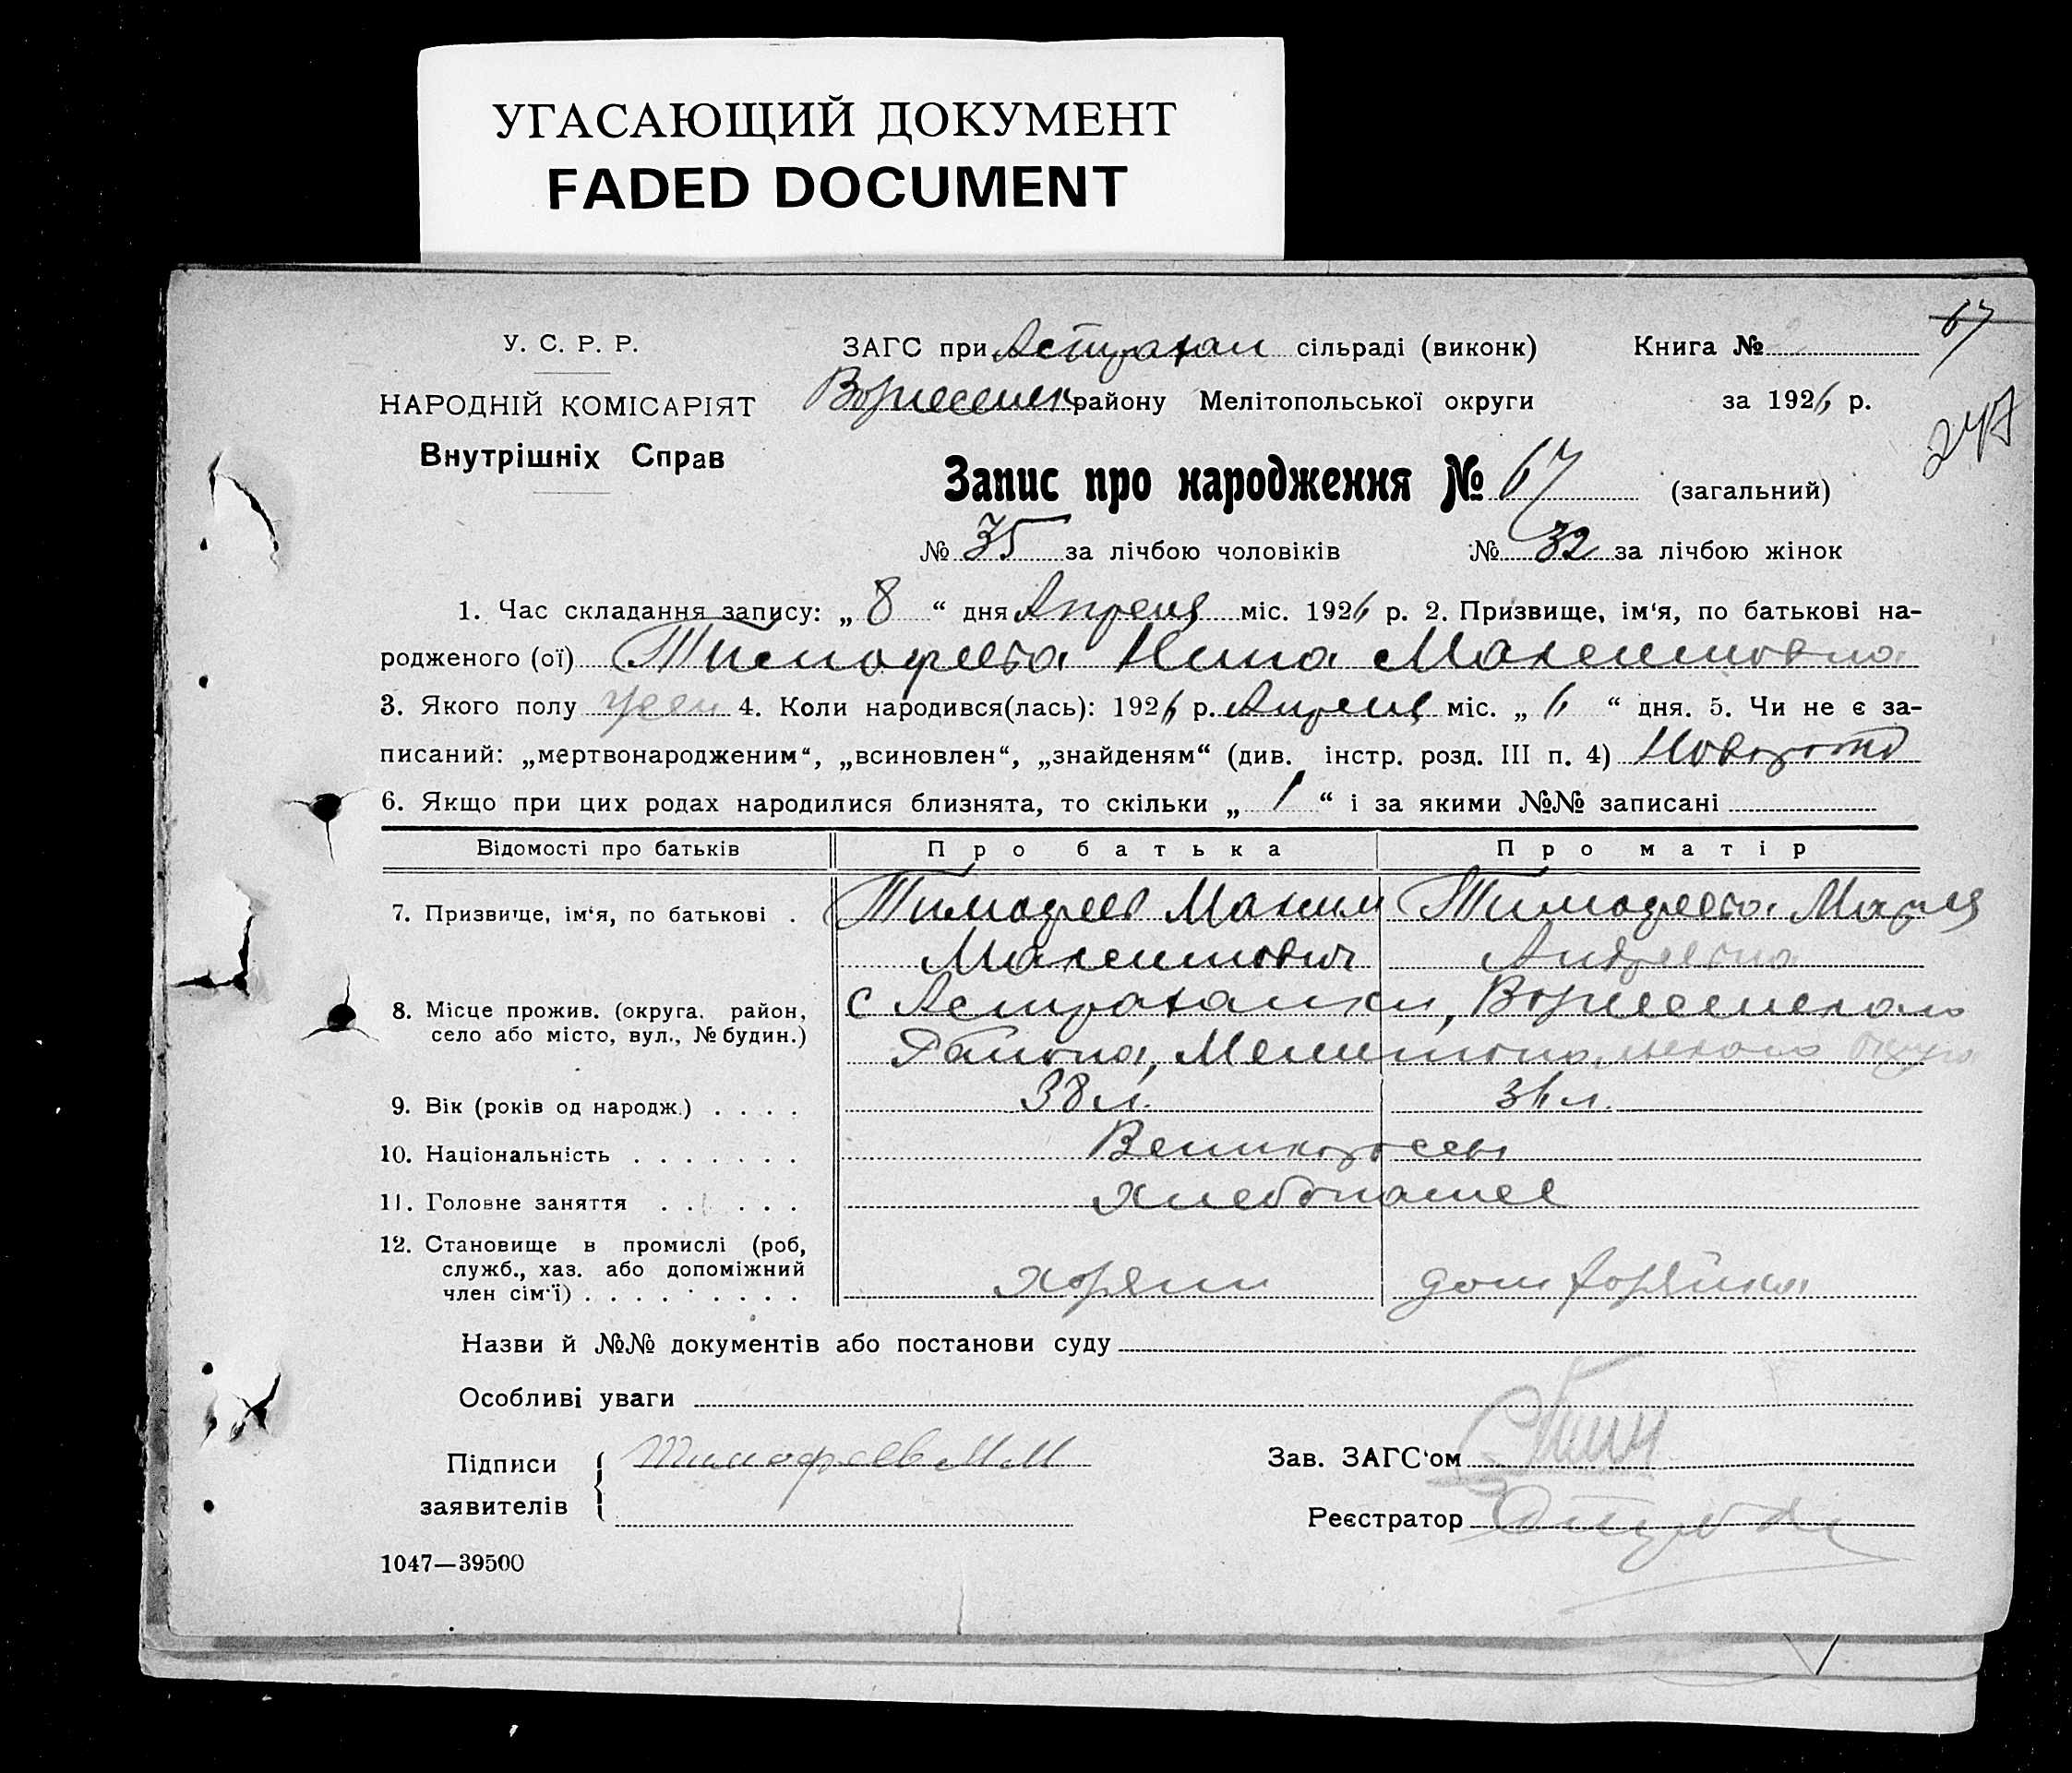 УГАСАЮЩИЙ ДОКУМЕНТ
FADED DOCUMENT
67
247
У. С. Р. Р.
НАРОДНІЙ КОМІСАРІЯТ
Внутрішніх Справ
ЗАГС при Астрахан сільраді (виконк)
Книга №
Вознесенск району Мелітопольської округи
за 1926 р.
Запис про народження № 67 (загальний)
№ 35 за лічбою чоловіків № 32 за лічбою жінок
1. Час складання запису: „ 8 “ дня Апреля міс. 1926 р. 2. Призвище, ім‘я, по батькові на-
родженого (ої) Тимофеева Нина Максимовна
3. Якого полу жен 4. Коли народився(лась): 1926 р. Апреля міс. „ 6 “ дня. 5. Чи не є за-
писаний: „мертвонародженим“, „всиновлен“, „знайденям“ (див. інстр. розд. III п. 4)
6. Якщо при цих родах народилися близнята, то скільки „ 1 “ і за якими №№ записані
Відомості про батьків Про батька Про матір
7. Призвище, ім‘я, по батькові . Тимофеев Максим Тимофеева Мария
Максимович Андреевна
8. Місце прожив. (округа. район, село або місто, вул., № будин.) с Астраханки, Вознесенского
Района, Мелитопольского округа
9. Вік (років од народж.) . . . . 38 л. 36 л.
10. Національність . . . . . . . Великороссы
11. Головне заняття . . . . . . Хлебопашес
12. Становище в промислі (роб,
служб., хаз. або допоміжний
член сім‘ї) . . . . . . . . . . хозяин дом хозяйка
Назви й №№ документів або постанови суду
Особливі уваги
Підписи
заявителів
Тимофеев М М
Зав. ЗАГС‘ом
Реєстратор
1047—39500